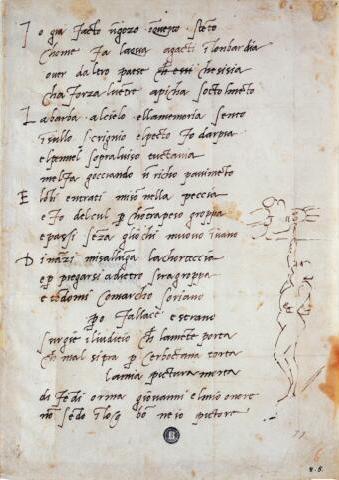 I o gia facto ungozo inquesto steto
chome fa lacqua agacti ilombardia
over daltro paese che essi chesisia
cha forza luetre apicha sottolmeto
La barba alcielo ellamemoria sento
isullo scrignio elpecto fo darpia
elpennel sopraluiso tuctauia
melfa gocciando u richo pauimeto
E lobi entrati miso nella peccia
e fo delcul p chotrapeso groppa
e passi seza gliochi muouo iuano
D inazi misalluga lachorteccia
e p piegarsi adietro siragroppa
e tedomi comarcho soriano
po fallace e strano
surgie iliuditio ch lamete porta
ch mal sitra p cerboctana torta
lamia pictura morta
difedi orma giouanni elmio onore
no sedo ilog bo ne io pictore
6